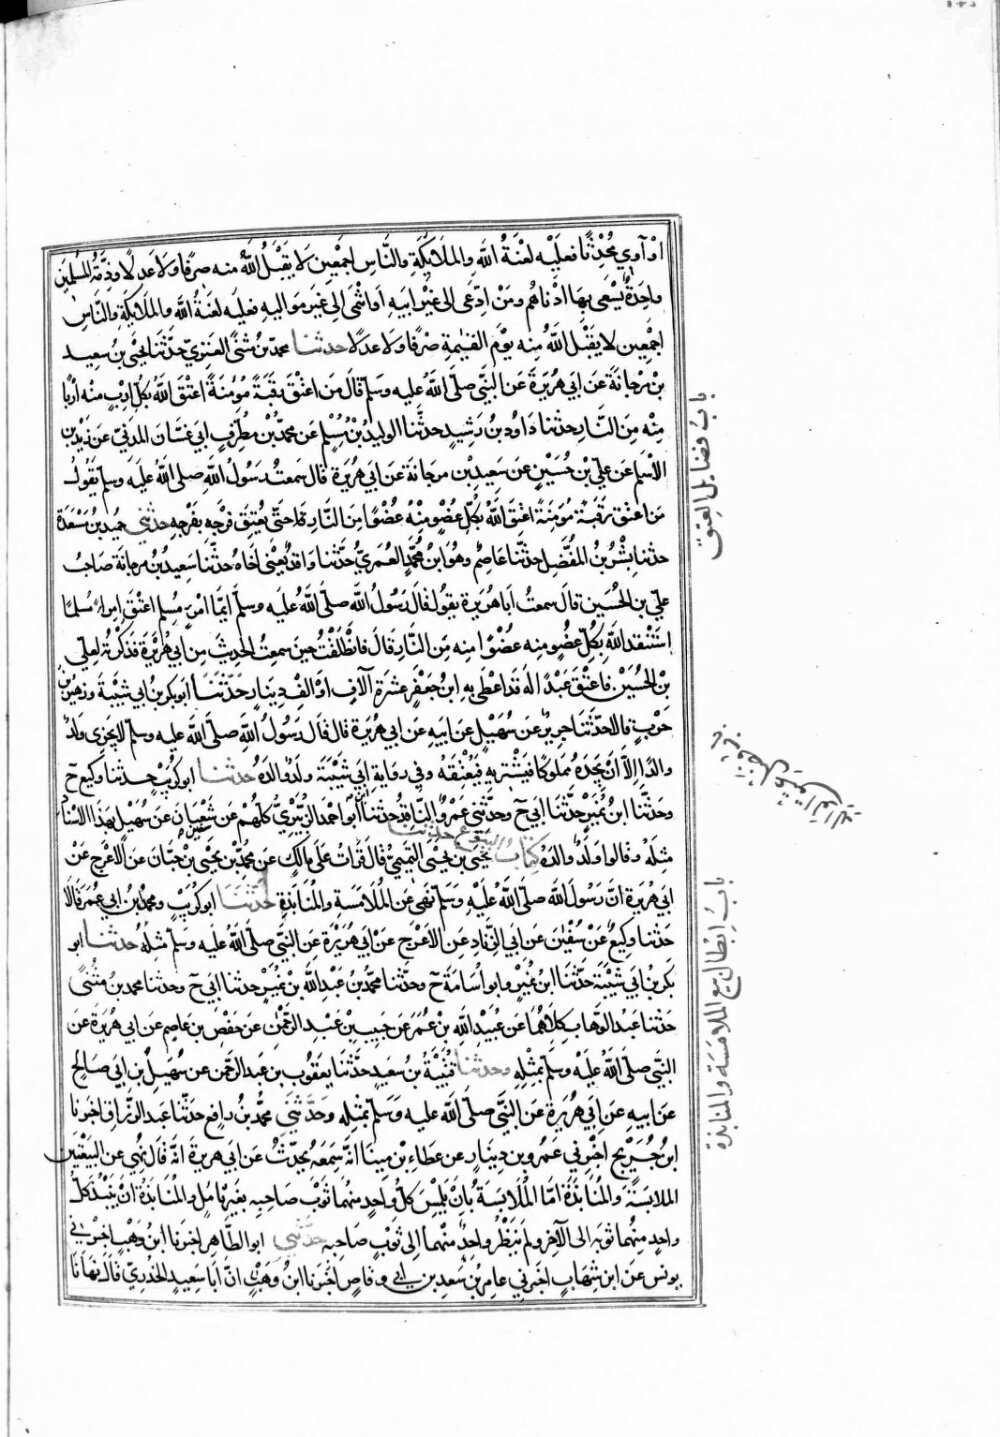 او آوي محدثا فعليه لعنة الله والملائكة والناس اجمعين لا يقبل الله منه صرفا ولا عدلا وذمة المسلمين
واحدة يسعى بها ادناهم ومن ادعى الى غير ابيه او انتمى الى غير مواليه فعليه لعنة الله والملائكة والناس
اجمعين لا يقبل الله منه يوم القيمة صرفا ولا عدلا حدثنا محمد بن مثنى العنزي حدثنا يحيى بن سعيد
بن مرجانة عن ابي هريرة عن النبي صلى الله عليه وسلم قال من اعتق رقبة مؤمنة اعتق الله بكل ارب منه اربا
منه من النار حدثنا داود بن رشيد حدثنا الوليد بن مسلم عن محمد بن مطرف ابي غسان المدني عن زيد بن
الاسلم عن علي بن حسين عن سعيد بن مرجانة عن ابي هريرة قال سمعت رسول الله صلى الله عليه وسلم يقول
من اعتق رقبة مؤمنة اعتق الله بكل عضو منه عضوا من النار حتى يعتق فرجه بفرجه حدثني حميد بن مسعدة
حدثنا بشر بن المفضل حدثنا عاصم وهو ابن محمد العمري حدثنا واقد يعني اخاه حدثنا سعيد بن مرجانة صاحب
علي بن الحسين قال سمعت ابا هريرة يقول قال رسول الله صلى الله عليه وسلم ايما امرء مسلم اعتق امراء مسلما
استنقد الله بكل عضو منه عضوا منه من النار قال فانطلقت حين سمعت الحديث من ابي هريرة فذكرته لعلي
بن الحسين فاعتق عبدا له قد اعطى به ابن جعفر عشرة آلاف او الف دينار حدثنا ابو بكر بن ابي شيبة وزهير بن
حرب قالا حدثنا جرير عن سهيل عن ابيه عن ابي هريرة قال قال رسول الله صلى الله عليه وسلم لا يجزي ولد
والدا الا ان يجده مملوكا فيشتريه فيعتقه وفي رواية ابي شيبة ولد والده حدثنا ابو كريب حدثنا وكيع ح
وحدثنا ابن نمير حدثنا ابي ح وحدثني عمرو الناقد حدثنا ابو احمد الزبيري كلهم عن سفين عن سهيل بهذا الاسناد
مثله وقالوا ولد والده كتاب البيوع حدثنا يحيى بن يحيى التميمي قال قرات على مالك عن محمد بن يحيى بن حبان عن الاعرج عن
ابي هريرة ان رسول الله صلى الله عليه وسلم نهى عن الملامسة والمنابذة حدثنا ابو كريب ومحمد بن ابي عمر قالا
حدثنا وكيع عن سفين عن ابي الزناد عن الاعرج عن ابي هريرة عن النبي صلى الله عليه وسلم مثله حدثنا ابو
بكر بن ابي شيبة حدثنا ابن نمير وابو اسامة ح وحدثنا محمد بن عبد الله بن نمير حدثنا ابي ح وحدثنا محمد بن مثنى
حدثنا عبد الوهاب كلاهما عن عبيد الله بن عمر عن حبيب بن عبد الرحمن عن حفص بن عاصم عن ابي هريرة عن
النبي صلى الله عليه وسلم بمثله وحدثنا قتيبة بن سعيد حدثنا يعقوب بن عبد الرحمن عن سهيل بن ابي صالح
عن ابيه عن ابي هريرة عن النبي صلى الله عليه وسلم بمثله وحدثني محمد بن رافع حدثنا عبد الرزاق اخبرنا
ابن جريج اخبرني عمرو بن دينار عن عطاء بن مينا انه سمعه يحدث عن ابي هريرة انه قال نهي عن البيعتين
الملامسة والمنابذة اما الملامسة بان يلمس كل واحد منهما ثوب صاحبه بغير تامل والمنابذة ان ينبذ كل
واحد منهما ثوبه الى الآخر ولم ينظر واحد منهما الى ثوب صاحبه حدثني ابو الطاهر اخبرنا ابن وهب اخبرني
يونس عن ابن شهاب اخبرني عامر بن سعد بن ابي وقاص اخبرنا ابن وهب ان ابا سعيد الخدري قال نهانا
باب فضايل العتق
باب ابطال بيع الملامسة والمنابذة